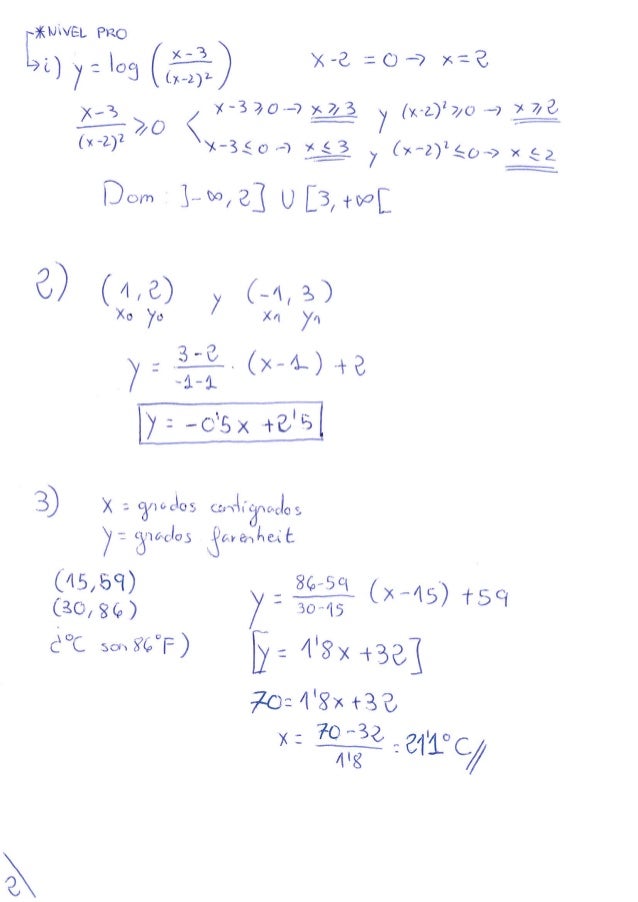 *NIVEL PRO
i) y = log ( (x-3)/(x-2)² ) x-2 = 0 → x = 2
(x-3)/(x-2)² ≥ 0 < x-3 ≥ 0 → x ≥ 3 y (x-2)² ≥ 0 → x ≥ 2
x-3 ≤ 0 → x ≤ 3 y (x-2)² ≤ 0 → x ≤ 2
Dom: ]-∞, 2] ∪ [3, +∞[
2) (1, 2) y (-1, 3)
x₀ y₀ x₁ y₁
y = (3-2)/(-1-1) · (x-1) + 2
y = -0'5x + 2'5
3) x = grados centigrados
y = grados farenheit
(15, 59)
(30, 86)
¿°C son 86°F)
y = (86-59)/(30-15) (x-15) + 59
[y = 1'8x + 32]
70 = 1'8x + 32
x = (70-32)/1'8 = 21'1°C//
2